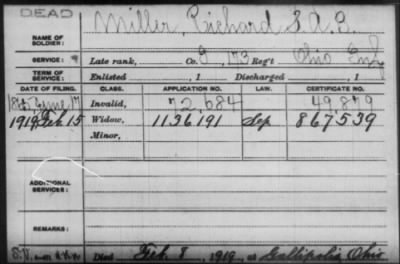 DEAD
NAME OF SOLDIER: Miller, Richard S.A.B.
SERVICE: Late rank, Co. G, 173 Reg't Ohio Inf
TERM OF SERVICE: Enlisted , 1 Discharged , 1
DATE OF FILING. CLASS. APPLICATION NO. LAW. CERTIFICATE NO.
June 17 Invalid, 72,684 49,879
1919, Feb. 15 Widow, 1136191 Sep 867539
Minor,
ADDITIONAL SERVICES:
REMARKS:
Died Feb. 8, 1919, at Gallipolis, Ohio